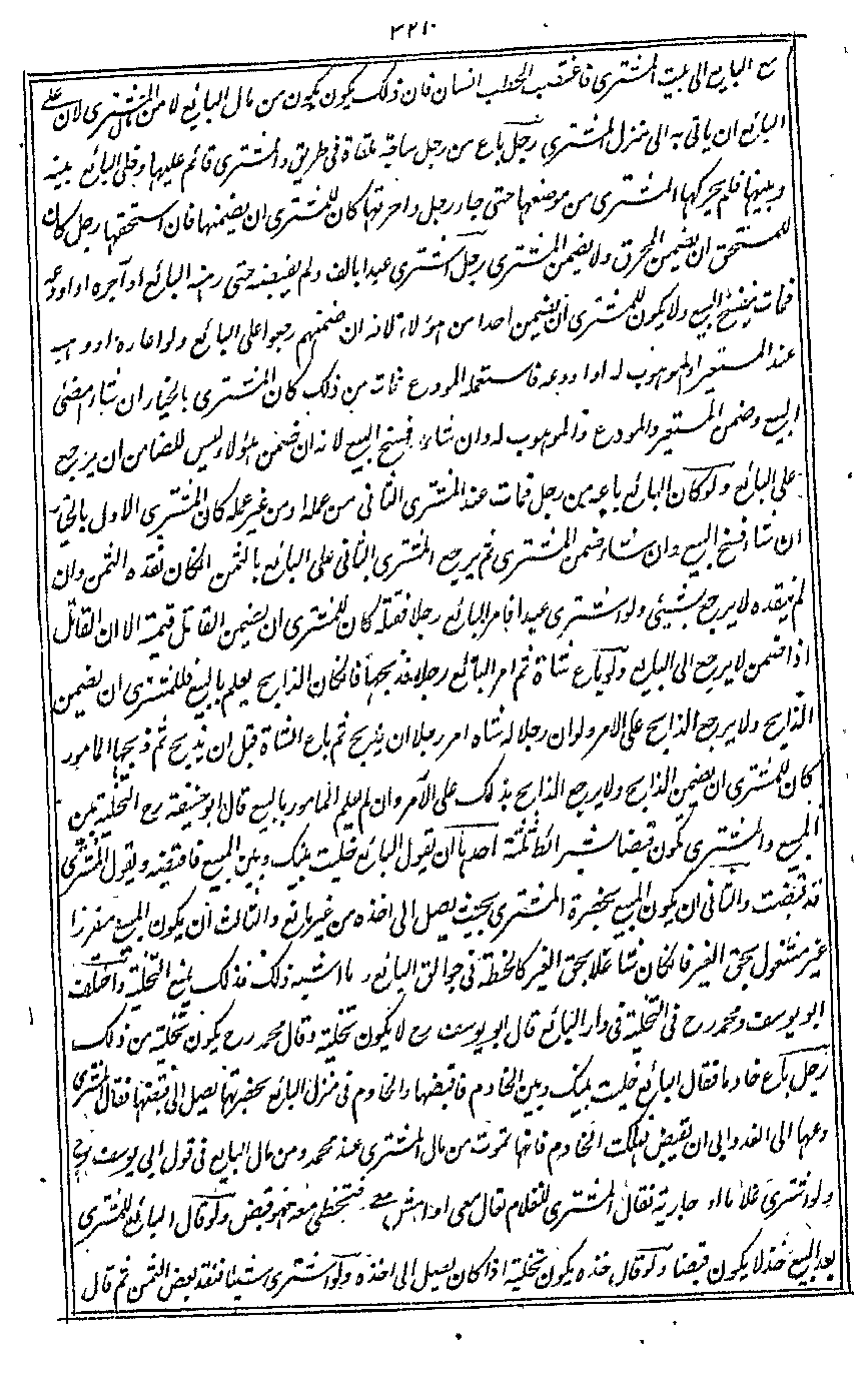 ٣٢١
مع البايع الى بيت المشترى فاغتصب الحطب انسان فان ذلك يكون يكون من مال البائع لا من مال المشترى لان على
البائع ان ياتى به الى منزل المشترى رجل باع من رجل ساجة ملقاة فى طريق والمشترى قائم عليها وخلى البائع بينه
وبينها فلم يحركها المشترى من موضعها حتى جاء رجل واحرقها كان للمشترى ان يضمنها فان استحقها رجل كان
للمستحق ان يضمن المحرق ولا يضمن المشترى رجل اشترى عبدا بالف ولم يقبضه حتى رهنه البائع او آجره او اودعه
فمات ينفسخ البيع ولا يكون للمشترى ان يضمن احدا من هؤلاء لانه ان ضمنهم رجعوا على البائع ولو اعاره او وهبه
عند المستعير او الموهوب له او اودعه فاستعمله المودع فمات من ذلك كان المشترى بالخيار ان شاء امضى
البيع وضمن المستعير والمودع والموهوب له وان شاء فسخ البيع لانه ان ضمن هؤلاء ليس للضامن ان يرجع
على البائع ولو كان البائع باعه من رجل فمات عند المشترى الثانى من عمله او من غير عمله كان المشترى الاول بالخيار
ان شاء فسخ البيع وان شاء ضمن المشترى ثم يرجع المشترى الثانى على البائع بالثمن ان كان نقده الثمن وان
لم ينقده لا يرجع بشيئ ولو اشترى عبدا فامر البائع رجلا فقتله كان للمشترى ان يضمن القاتل قيمته الا ان القاتل
اذا ضمن لا يرجع الى البايع ولو باع شاة ثم امر البائع رجلا فذبحها فان كان الذابح يعلم بالبيع فللمشترى ان يضمن
الذابح ولا يرجع الذابح على الآمر ولو ان رجلا له شاة امر رجلا ان يذبح ثم باع الشاة قبل ان يذبح ثم ذبحها المامور
كان للمشترى ان يضمن الذابح ولا يرجع الذابح بذلك على الآمر وان لم يعلم المامور بالبيع قال ابو حنيفة رح التخلية بين
المبيع والمشترى تكون قبضا بشرائط ثلثة احدها ان يقول البائع خليت بينك وبين المبيع فاقبضه ويقول المشترى
قد قبضت والثانى ان يكون المبيع بحضرة المشترى بحيث يصل الى اخذه من غير مانع والثالث ان يكون المبيع مفرزا
غير مشغول بحق الغير فان كان شاغلا بحق الغير كالحنطة فى جوالق البائع وما اشبه ذلك فذلك يمنع التخلية واختلف
ابو يوسف ومحمد رح فى التخلية فى دار البائع قال ابو يوسف رح لا يكون تخلية وقال محمد رح يكون تخلية من ذلك
رجل باع خادما فقال البائع خليت بينك وبين الخادم فاقبضها والخادم فى منزل البائع بحضرتها يصل الى قبضها فقال المشترى
دعها الى الغد وابى ان يقبض فهلكت الخادم فانها تموت من مال المشترى عند محمد ومن مال البايع فى قول ابى يوسف رح
ولو اشترى غلاما او جارية فقال المشترى للغلام تعال معى او امش معى فتخطى معه فهو قبض ولو قال البائع للمشترى
بعد البيع خذ لا يكون قبضا ولو قال خذه يكون تخلية اذا كان يصل الى اخذه ولو اشترى شيئا فنقد بعض الثمن ثم قال